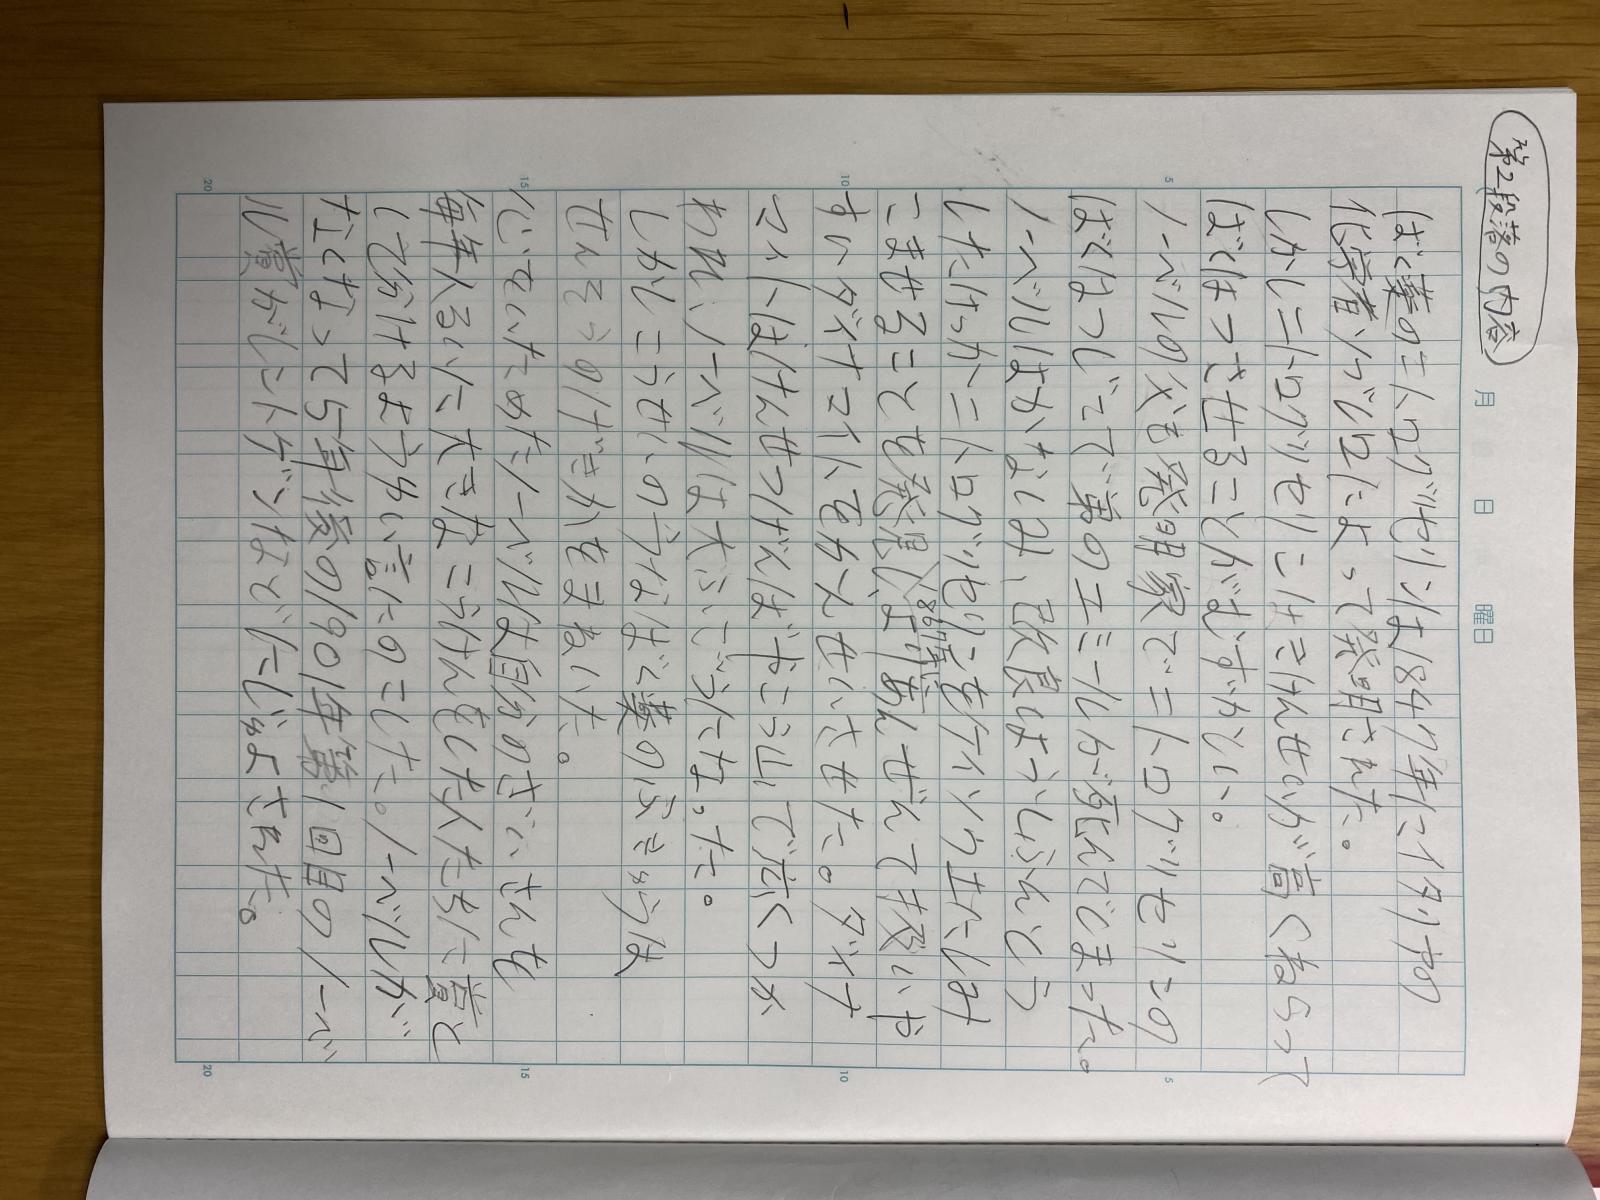 第2段落の内容
月 日 曜日
ばく薬のニトログリセリンは1847年にイタリアの
化学者ソブレロによって発明された。
しかしニトログリセリンはきけんせいが高くねらって
ばくはつさせることがむずかしい。
ノーベルの父も発明家でニトログリセリンの
ばくはつじこで弟のエミールが死んでしまった。
ノーベルはかなしみ、改良しようしぶんとう
したけっかニトログリセリンをケイソウ土にしみ
こませることを発見し、よりあんぜんで扱いや
1867年に
すいダイナマイトをかんせいさせた。ダイナ
マイトはけんせつげんばやこう山で広くつか
われ、ノーベルは大ふごうになった。
しかしこうせいのうなばく薬のふきゅうは
せんそうのげきかをまねいた。
心じていためたノーベルは自分のざいさんを
毎年人るいに大きなこうけんをした人たちに賞と
して分けるようゆい言にのこした。ノーベルが
亡くなって5年後の1901年第1回目のノーベ
ル賞がレントゲンなどにじゅよされた。
5
10
15
20
5
10
15
20